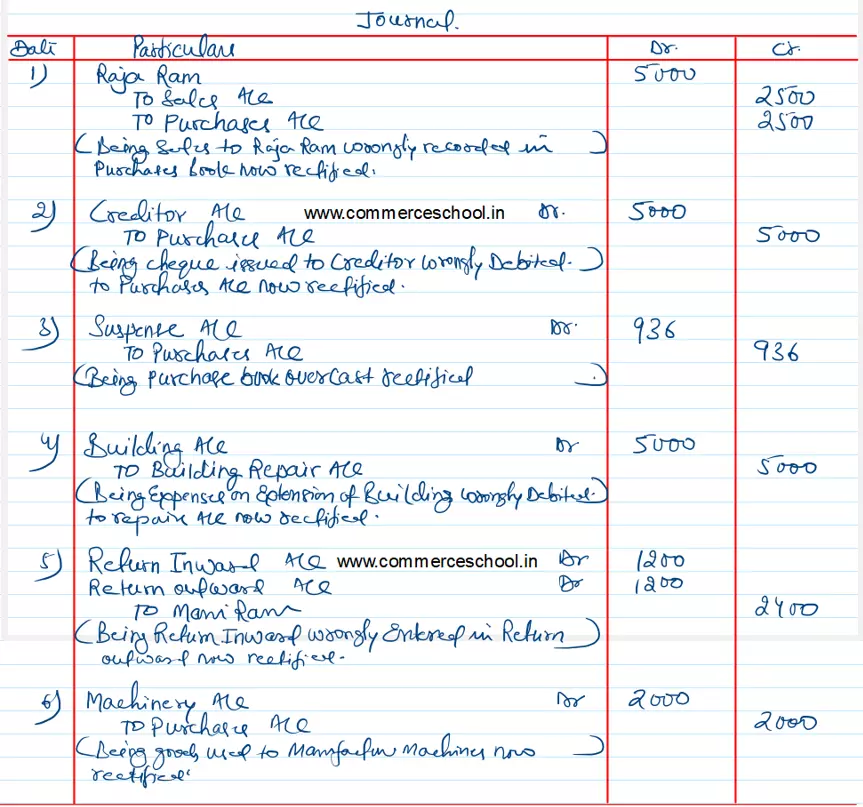 Journal.
Date Particulars Dr. Cr.
1) Raja Ram 5000
To Sales A/c 2500
To Purchases A/c 2500
(Being Sales to Raja Ram wrongly recorded in
Purchases book now rectified.
2) Creditor A/c www.commerceschool.in Dr. 5000
To Purchases A/c 5000
(Being cheque issued to Creditor wrongly Debited.)
to Purchases A/c now rectified.
3) Suspense A/c Dr. 936
To Purchases A/c 936
(Being purchase book overcast rectified .)
4) Building A/c Dr 5000
To Building Repair A/c 5000
(Being Expenses on Extension of Building wrongly Debited.)
to repair A/c now rectified.
5) Return Inward A/c www.commerceschool.in Dr 1200
Return outward A/c Dr 1200
To Mani Ram 2400
(Being Return Inward wrongly Entered in Return)
outward now rectified.
6) Machinery A/c Dr 2000
To Purchases A/c 2000
(Being goods used to Manufactur Machines now)
rectified.